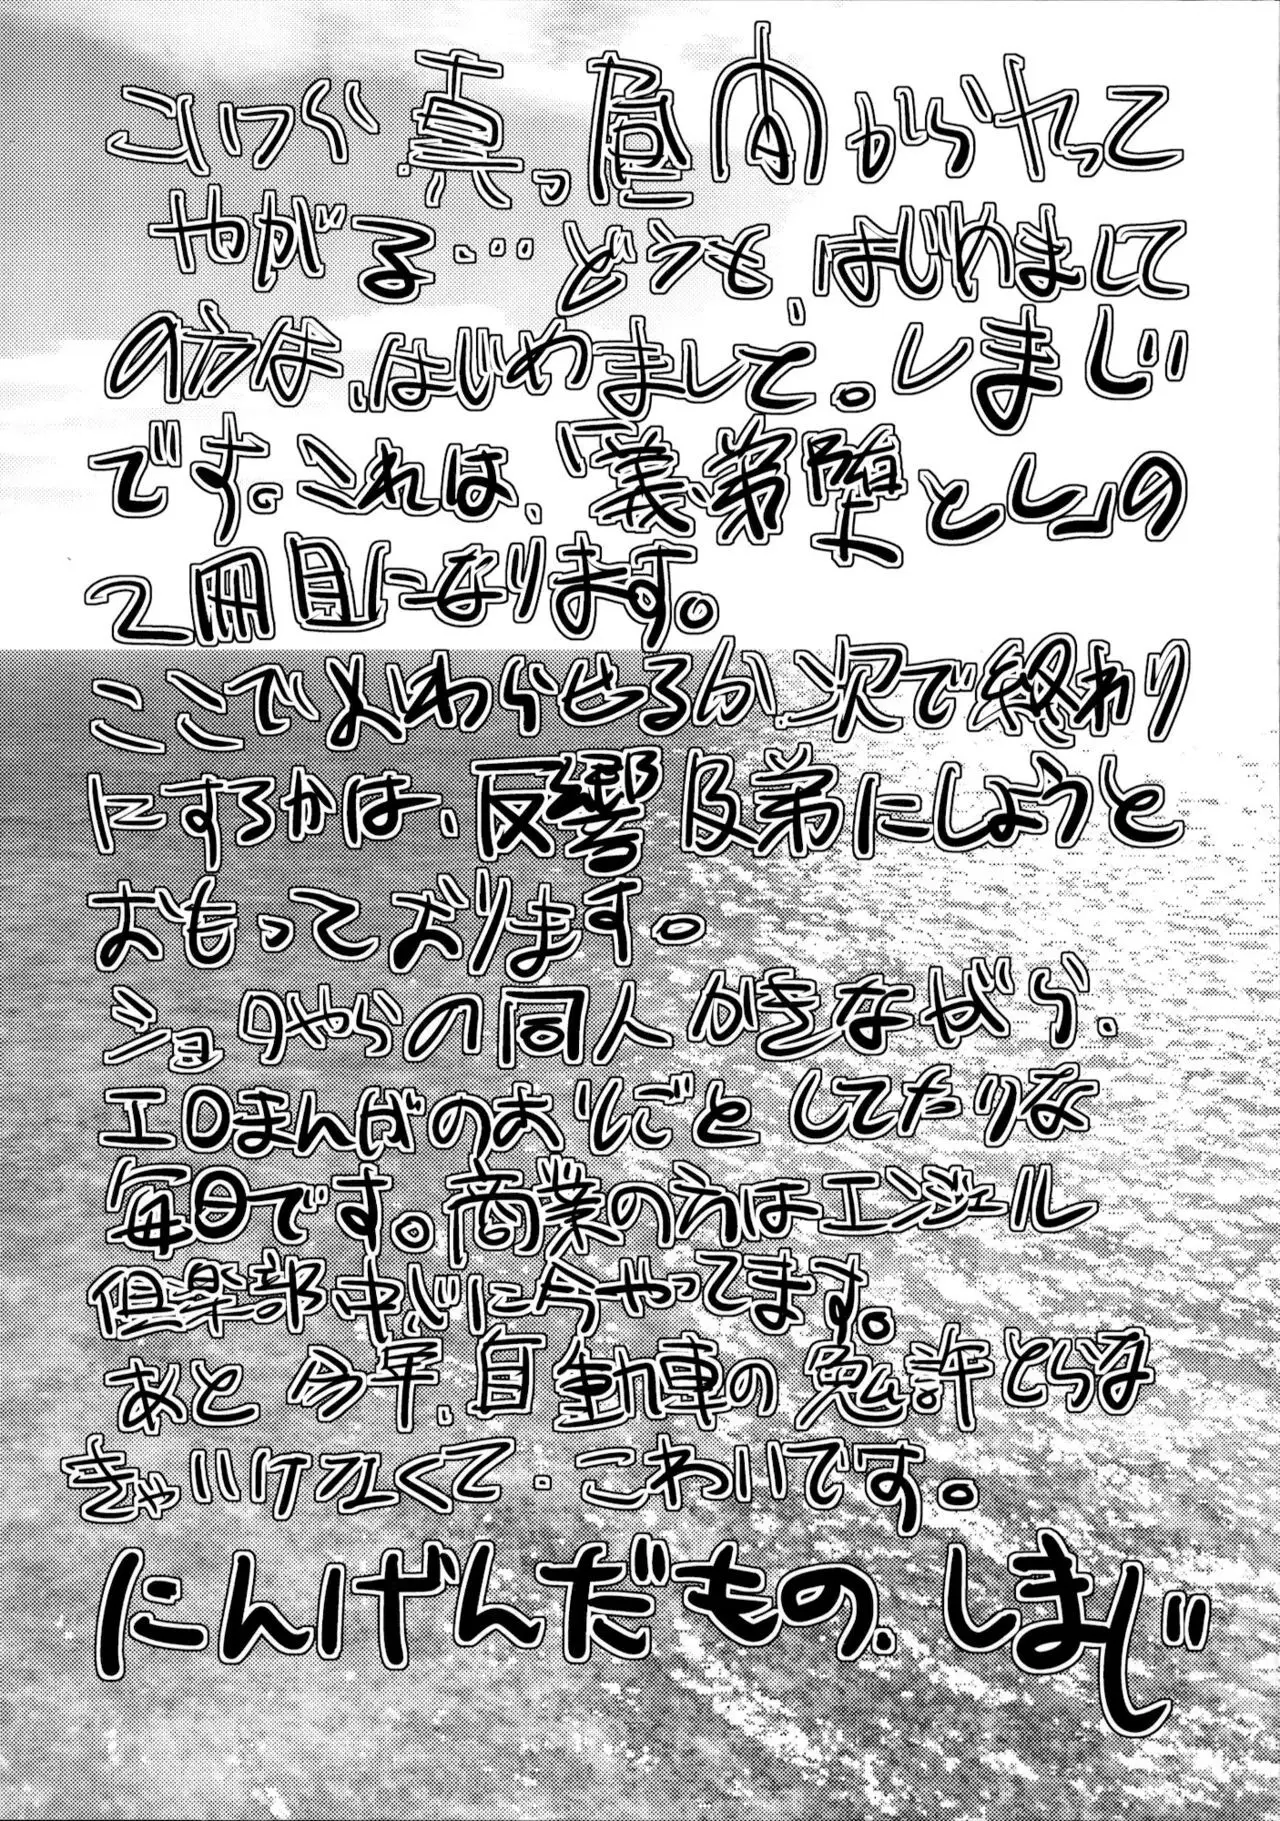 こいつら真っ昼間からヤって
やがる…どうも、はじめまして
の方は、はじめまして。しまじ
です。これは、「義弟堕とし」の
2冊目になります。
ここでおわらせるか、次で終わり
にするかは、反響次第にしようと
おもっております。
ショタやらの同人かきながら、
エロまんがのおしごとしてたりな
毎日です。商業の方はエンジェル
倶楽部中心に今やってます。
あと今年、自動車の免許とらな
きゃいけなくて、こわいです。
にんげんだもの、しまじ